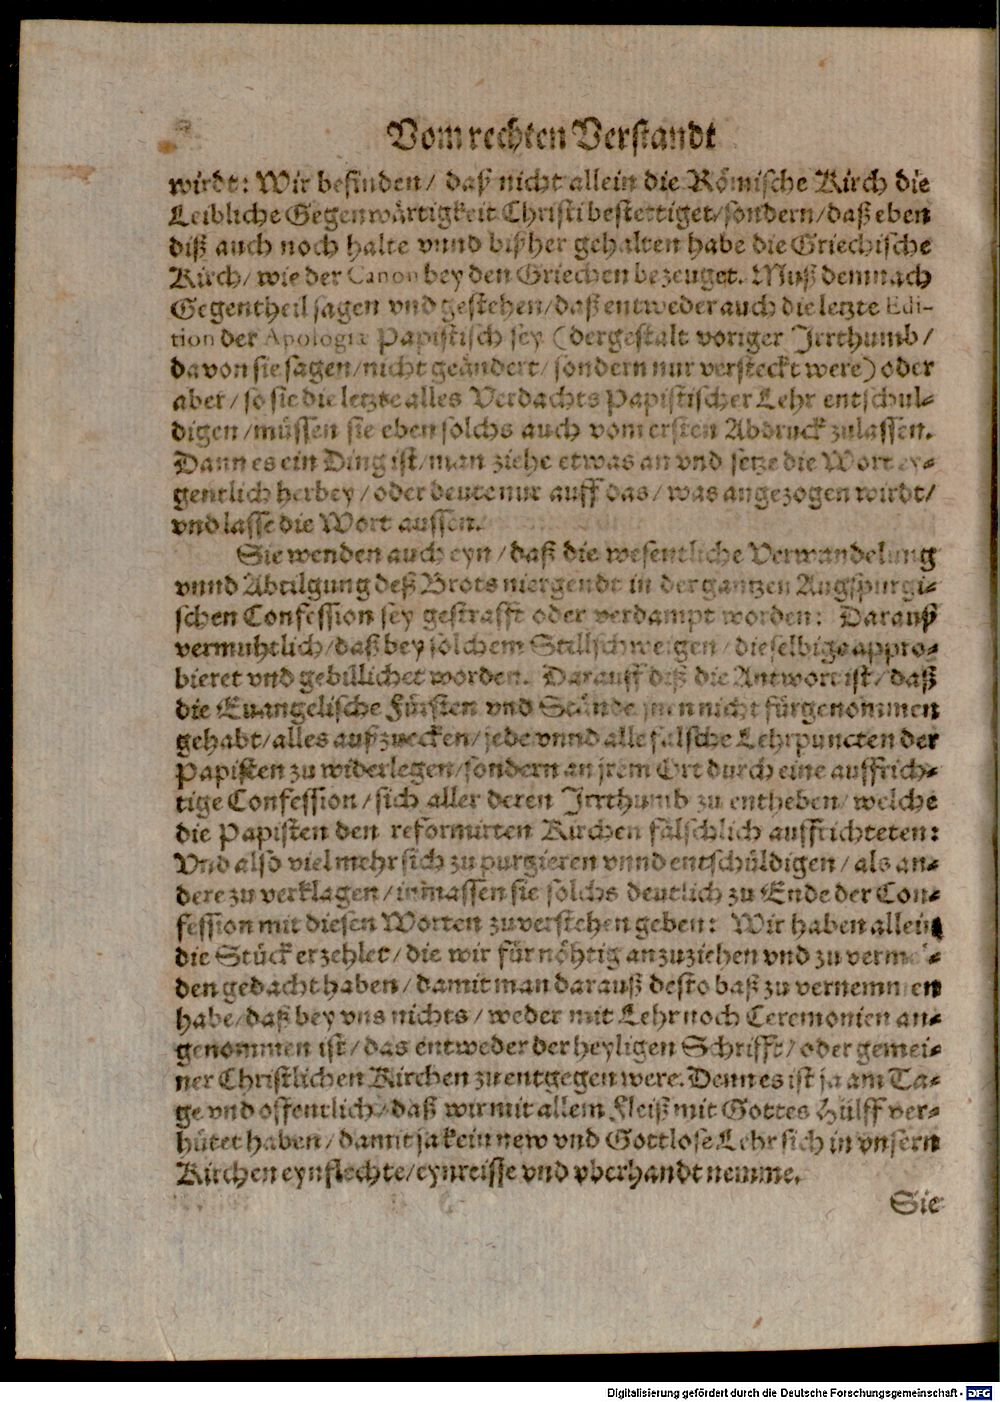 Vom rechten Verstandt
wirdt: Wir befinden / daß nicht allein die Römische Kirch die
Leibliche Gegenwärtigkeit Christi bestettiget / sondern / daß eben
diß auch noch halte vnnd bißher gehalten habe die Griechische
Kirch / wie der Canon bey den Griechen bezeuget. Muß demnach
Gegentheil sagen vnd gestehen / daß entweder auch die letzte Edi-
tion der Apologiæ Papistisch sey (dergestalt voriger Jrrthumb /
davon sie sagen / nicht geändert / sondern nur versteckt were) oder
aber / so sie die letzte alles Verdachts Papistischer Lehr entschul-
digen / müssen sie eben solchs auch vom ersten Abdruck zulassen.
Dann es ein Ding ist / man ziehe etwas an vnd setze die Wort ey-
gentlich herbey / oder deute nur auff das / was angezogen wirdt /
vnd lasse die Wort aussen.
Sie wenden auch eyn / daß die wesentliche Verwandelung
vnnd Abtilgung deß Brots niergendt in der gantzen Augspurgi-
schen Confession sey gestrafft oder verdampt worden: Darauß
vermuhtlich / daß bey solchem Stillschweigen / dieselbige appro-
bieret vnd gebillichet worden. Darauff diß die Antwort ist / daß
die Euangelische Fürsten vnd Stände jnen nicht fürgenommen
gehabt / alles außzwecken / jede vnnd alle falsche Lehrpuncten der
Papisten zu widerlegen / sondern an jrem Ort durch eine auffrich-
tige Confession / sich aller deren Jrrthumb zu entheben / welche
die Papisten den reformirten Kirchen fälschlich auffrichteten:
Vnd also viel mehr sich zu purgieren vnnd entschüldigen / als an-
dere zu verklagen / inmassen sie solchs deutlich zu Ende der Con-
fession mit diesen Worten zuverstehen geben: Wir haben allein
die Stück erzehlet / die wir für nöhtig anzuziehen vnd zu vermel-
den gedacht haben / damit man darauß desto baß zu vernemmen
habe / daß bey vns nichts / weder mit Lehr noch Ceremonien an-
genommen ist / das entweder der heyligen Schrifft / oder gemei-
ner Christlichen Kirchen zu entgegen were. Denn es ist ja am Ta-
ge vnd offentlich / daß wir mit allem Fleiß mit Gottes Hülff ver-
hütet haben / damit ja kein new vnd Gottlose Lehr sich in vnsern
Kirchen eynflechte / eynreisse vnd vberhandt nemme.
Sie
Digitalisierung gefördert durch die Deutsche Forschungsgemeinschaft - DFG